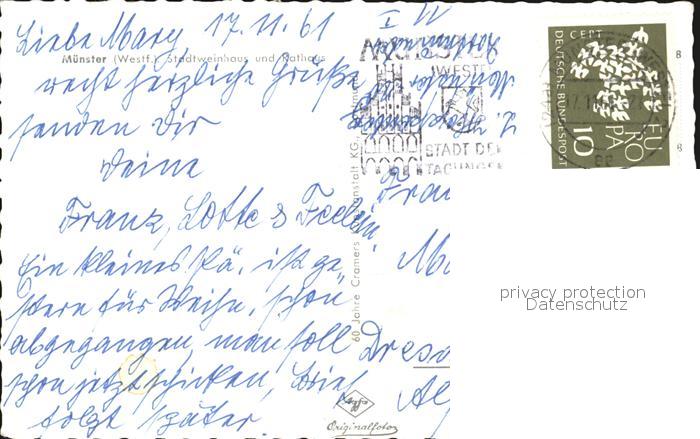 Liebe Mary, 17.11.61
Münster (Westf.) Stadtweinhaus und Rathaus
recht herzliche Grüße
senden Dir
Deine
Franz, Lotte &
Ein kleines Pä. ist ge-
stern für Weihn. schon
abgegangen, man soll
schon jetzt schicken, Brief
folgt später
MÜNSTER
WESTF
STADT DER
TAGUNGEN
Frau
Dresd
60 Jahre Cramers Kunstanstalt KG.,
Agfa
Originalfoto
CEPT
DEUTSCHE BUNDESPOST
EUROPA
10
8
8
privacy protection
Datenschutz